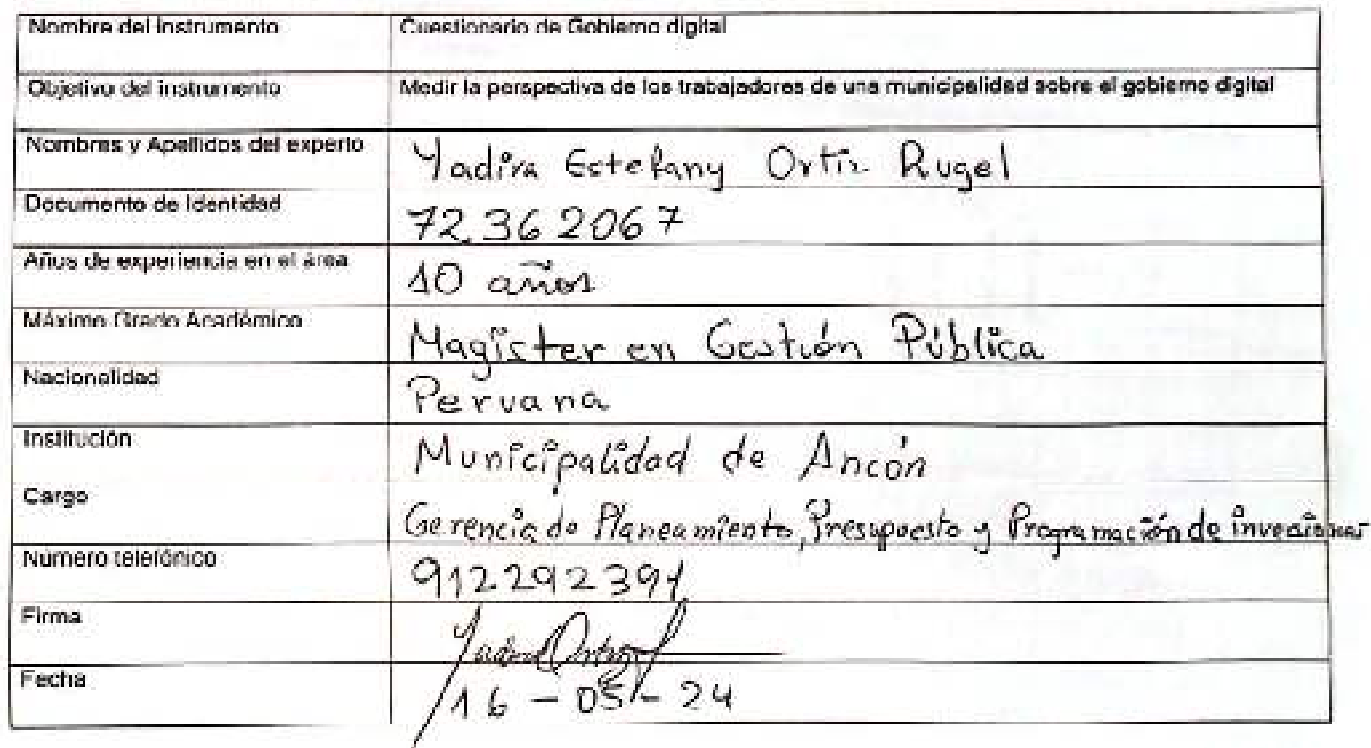 Nombre del instrumento Cuestionario de Gobierno digital
Objetivo del instrumento Medir la perspectiva de los trabajadores de una municipalidad sobre el gobierno digital
Nombres y Apellidos del experto Yadira Estefany Ortiz Rugel
Documento de Identidad 72362067
Años de experiencia en el área 10 años
Máximo Grado Académico Magister en Gestión Pública
Nacionalidad Peruana
Institución Municipalidad de Ancón
Cargo Gerencia de Planeamiento, Presupuesto y Programación de inversiones
Número telefónico 912292391
Firma
Fecha 16 - 05 - 24